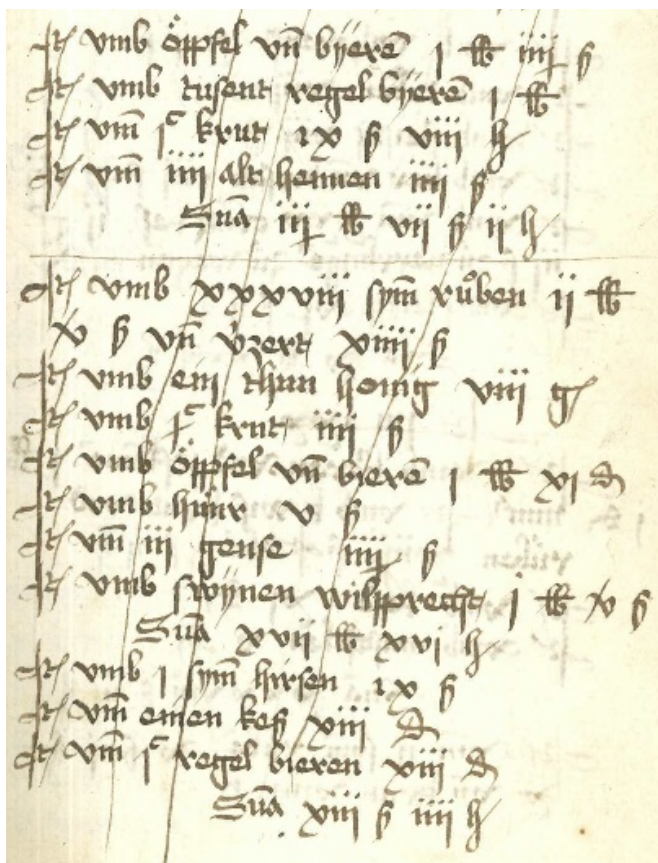 It vmb öpffel vn̄ byerē j lb iiij ß
It vmb tusent regel byerē j lb
It vm̄ jᶜ krut ix ß viij h
It vm̄ iiij alt hennen iiij ß
Sūa iij lb vij ß ij h
It vmb xxxviij sym̄ růben ij lb
x ß vn̄ vzert xiiij ß
It vmb ein thun honig viij g
It vmb jᶜ krut iiij ß
It vmb öpffel vn̄ bierē j lb xj d
It vmb hünr v ß
It vm̄ iij gense iiij ß
It vmb swynen wilpprecht j lb x ß
Sūa xvij lb xvj h
It vmb j sym̄ hirsen ix ß
It vm̄ einen keß xiij d
It vm̄ jᶜ regel bieren xiij d
Sūa xiij ß iiij h